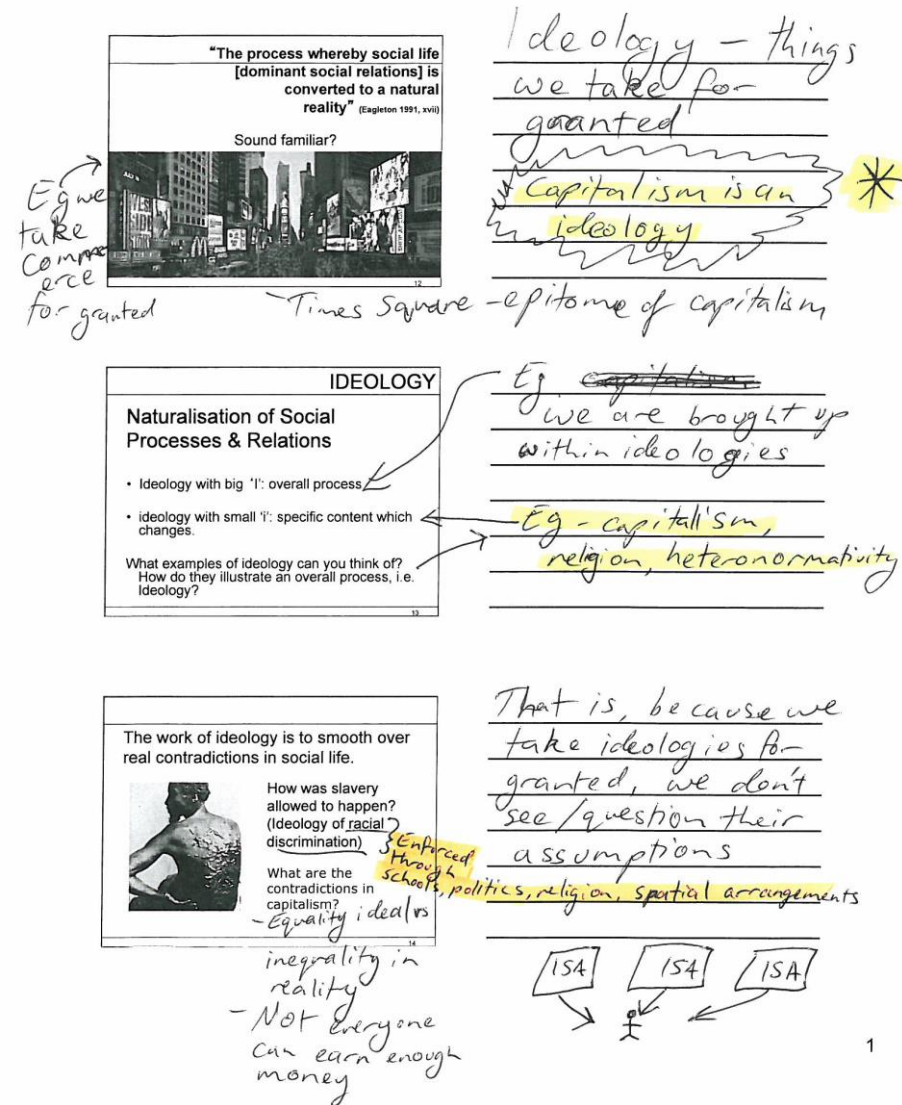 "The process whereby social life
[dominant social relations] is
converted to a natural
reality" (Eagleton 1991, xvii)
Sound familiar?
12
Eg we
take
comm
erce
for granted
- Times Square - epitome of capitalism
Ideology - things
we take for
granted
Capitalism is an
ideology
IDEOLOGY
Naturalisation of Social
Processes & Relations
• Ideology with big 'I': overall process
• ideology with small 'i': specific content which
changes.
What examples of ideology can you think of?
How do they illustrate an overall process, i.e.
Ideology?
13
Eg capitalism
we are brought up
within ideologies
Eg - capitalism,
religion, heteronormativity
The work of ideology is to smooth over
real contradictions in social life.
How was slavery
allowed to happen?
(Ideology of racial
discrimination)
What are the
contradictions in
capitalism?
14
Enforced
through
schools, politics, religion, spatial arrangements
- Equality ideal vs
inequality in
reality
- Not everyone
can earn enough
money
That is, because we
take ideologies for
granted, we don't
see/question their
assumptions
ISA ISA ISA
1